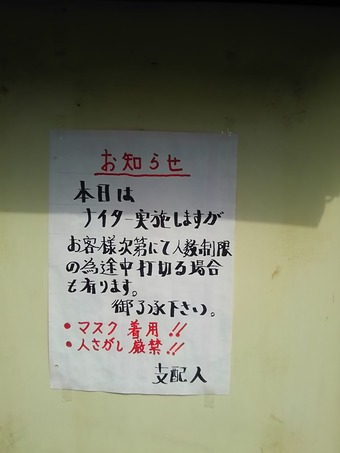 お知らせ
本日は
ナイター実施しますが
お客様次第にて人数制限
の為途中打切る場合
も有ります。
御了承下さい。
・マスク着用!!
・人さがし厳禁!!
支配人